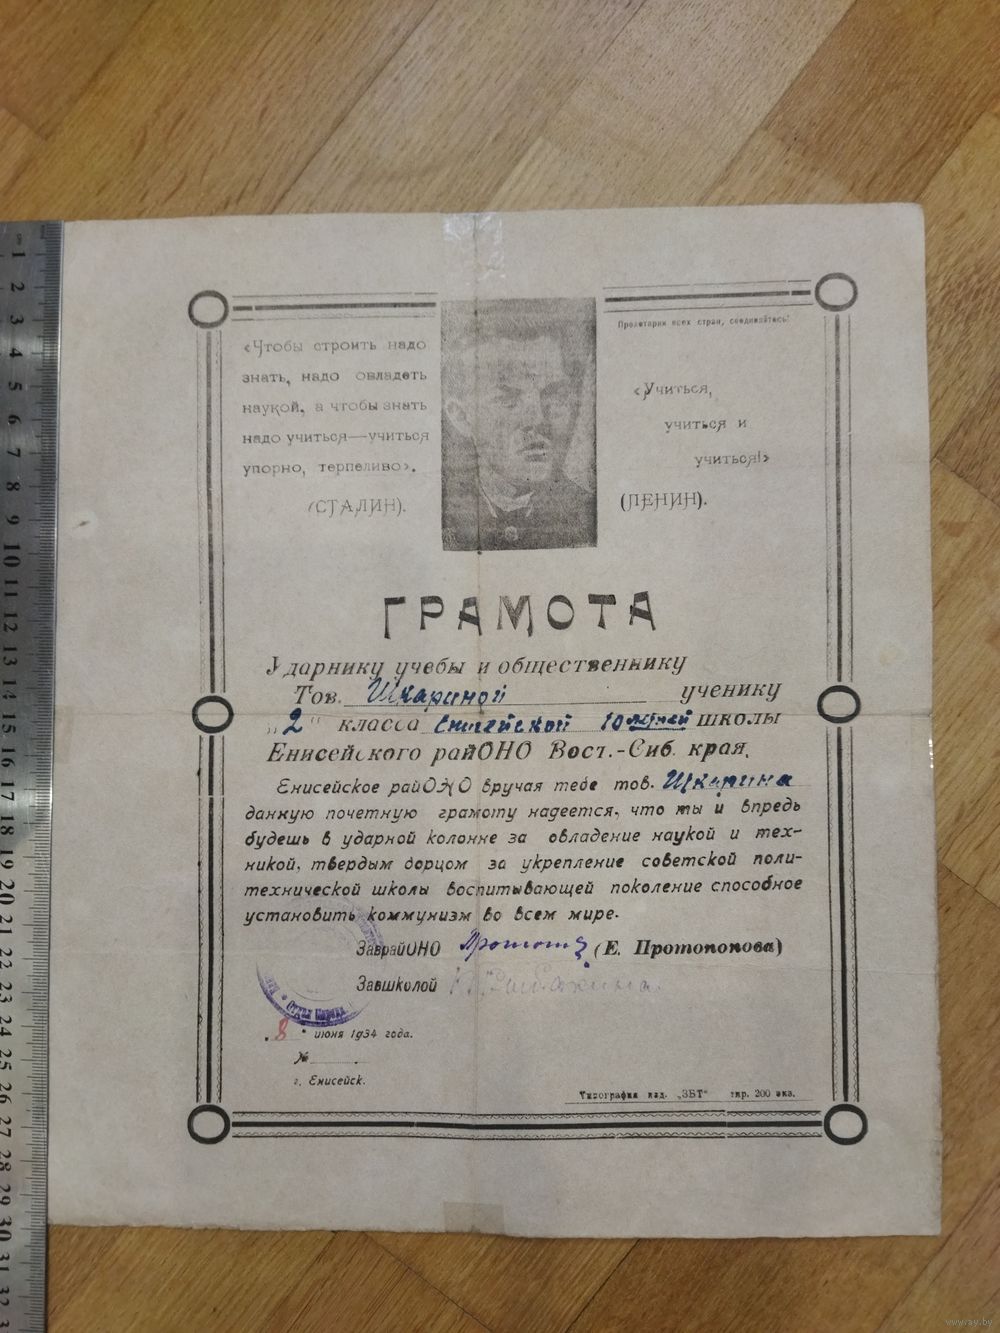 Пролетарии всех стран, соединяйтесь!
«Чтобы строить надо
знать, надо овладеть
наукой, а чтобы знать
надо учиться—учиться
упорно, терпеливо».
(СТАЛИН).
«Учиться,
учиться и
учиться!»
(ЛЕНИН).
ГРАМОТА
Ударнику учебы и общественнику
Тов. Шкариной ученику
„2“ класса Енисейской 10 летней школы
Енисейского райОНО Вост.-Сиб. края.
Енисейское райОНО вручая тебе тов. Шкарина
данную почетную грамоту надеется, что ты и впредь
будешь в ударной колонне за овладение наукой и тех-
никой, твердым борцом за укрепление советской поли-
технической школы воспитывающей поколение способное
установить коммунизм во всем мире.
ЗаврайОНО (Е. Протопопова)
Завшколой
„8“ июня 1934 года.
№
г. Енисейск.
Типография изд. „ЗБТ“ тир. 200 экз.
1
2
3
4
5
6
7
8
9
10
11
12
13
14
15
16
17
18
19
20
21
22
23
24
25
26
27
28
29
30
31
32
www.ay.by